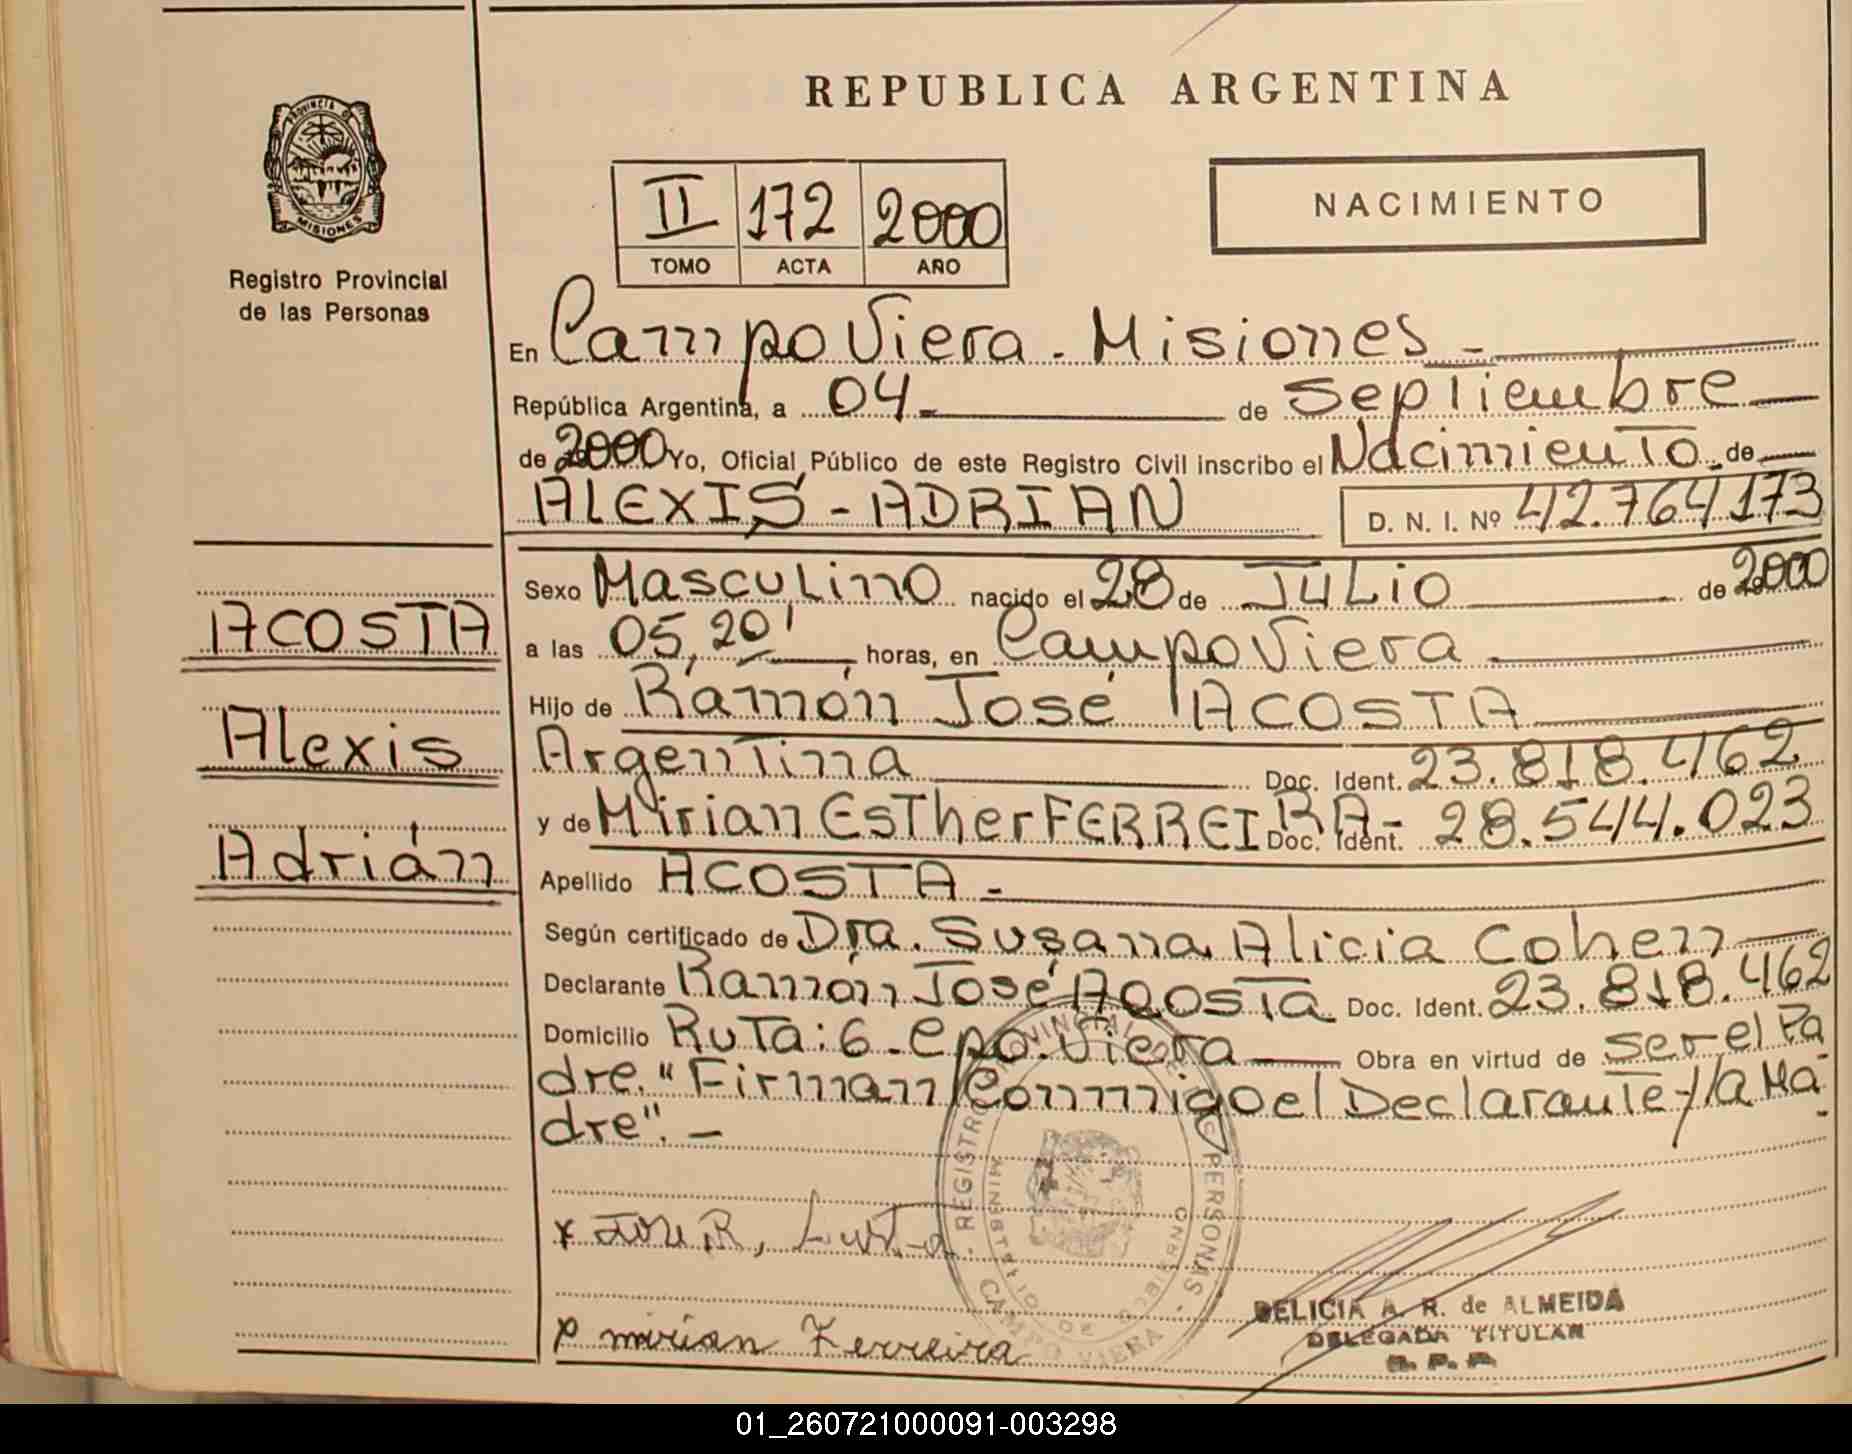 REPUBLICA ARGENTINA
PROVINCIA DE
MISIONES
Registro Provincial
de las Personas
II 172 2000
TOMO ACTA AÑO
NACIMIENTO
En Campo Viera - Misiones -
República Argentina, a 04 - de Septiembre
de 2000 Yo, Oficial Público de este Registro Civil inscribo el Nacimiento de
ALEXIS - ADRIAN D. N. I. Nº 42.764.173
Sexo Masculino nacido el 28 de JULio de 2000
ACOSTA
a las 05,20' horas, en Campo Viera -
Hijo de Ramón José ACOSTA
Alexis
Argentina Doc. Ident. 23.818.462
y de Mirian EsTher FERREIRA - Doc. Ident. 28.544.023
Adrián
Apellido ACOSTA -
Según certificado de Dra. Susana Alicia Cohen
Declarante Ramón José ACOSTA Doc. Ident. 23.818.462
Domicilio RuTa: 6 - Cpo. Viera Obra en virtud de ser el Pa
dre. "Firman Conmigo el Declarante y la Ma
dre". -
REGISTRO PROVINCIAL DE LAS PERSONAS
MINISTERIO DE GOBIERNO
CAMPO VIERA
x
DELICIA A. R. de ALMEIDA
DELEGADA TITULAR
R. P. P.
mirian Ferreira
01_260721000091-003298